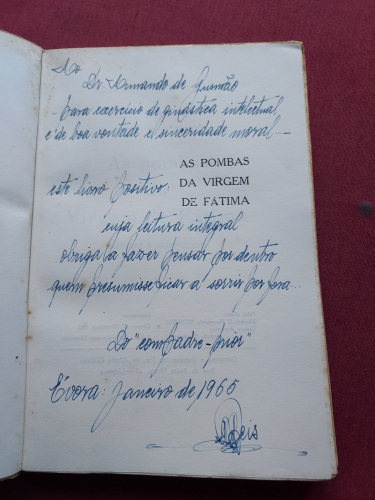 Ao
Dr. Armando de Gusmão
- para exercício de ginástica intelectual
e de boa vontade e sinceridade moral -
AS POMBAS
DA VIRGEM
DE FÁTIMA
este livro positivo,
cuja leitura integral
obriga a fazer pensar por dentro
quem presumisse ficar a sorrir por fora...
Do "compadre-prior"
Évora: Janeiro de 1965